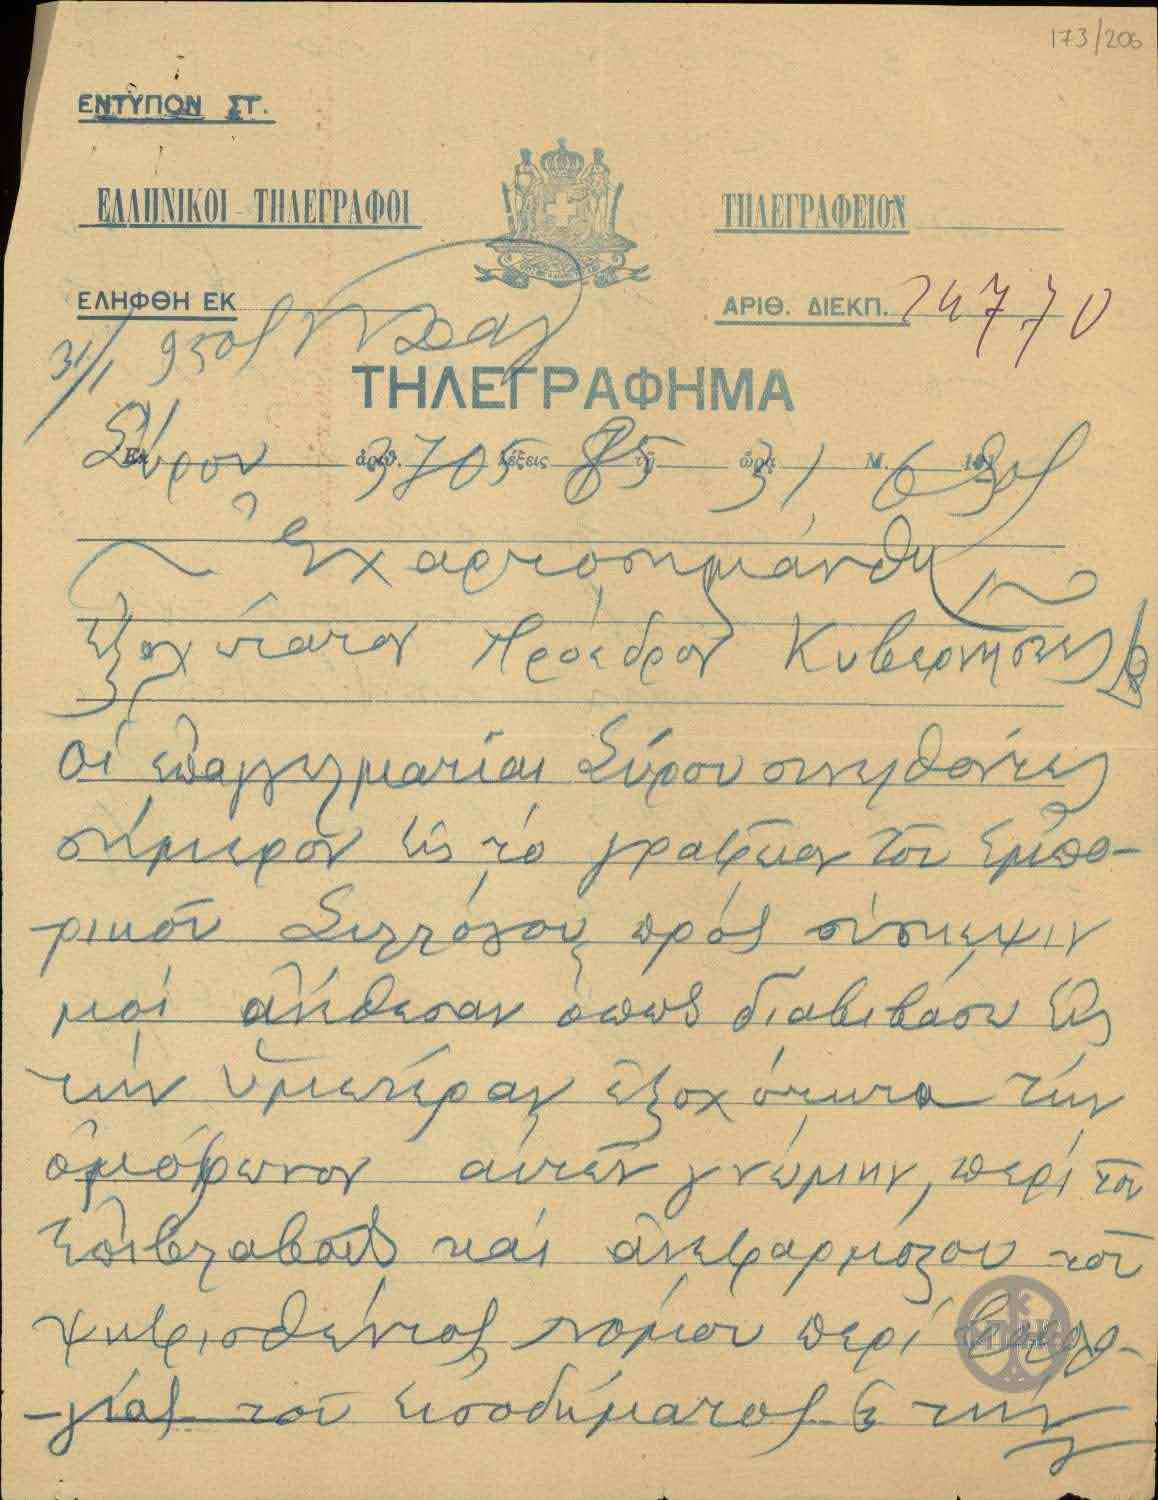 173/206
ΕΝΤΥΠΟΝ ΣΤ.
ΕΛΛΗΝΙΚΟΙ ΤΗΛΕΓΡΑΦΟΙ
ΤΗΛΕΓΡΑΦΕΙΟΝ
ΕΛΗΦΘΗ ΕΚ
ΑΡΙΘ. ΔΙΕΚΠ. 24770
31/1
ΤΗΛΕΓΡΑΦΗΜΑ
Ἐκ Σύρου ἀριθ. 3705 λέξεις 85 τῇ 31 ὥρᾳ Μ. 6
Ἐχαρτοσημάνθη
Ἐξοχώτατον Πρόεδρον Κυβερνήσεως
Οἱ ἐπαγγελματίαι Σύρου συνελθόντες
σήμερον εἰς τό γραφεῖον τοῦ Ἐμπο-
ρικοῦ Συλλόγου πρός σύσκεψιν
μοί ἀνέθεσαν ὅπως διαβιβάσω εἰς
τήν ὑμετέραν ἐξοχότητα τήν
ὁμόφωνον αὐτῶν γνώμην, περί τοῦ
ἐπιβλαβοῦς καί ἀνεφαρμόζου τοῦ
ψηφισθέντος νόμου περί φορολο-
γίας τοῦ εἰσοδήματος ἐκ τῆς